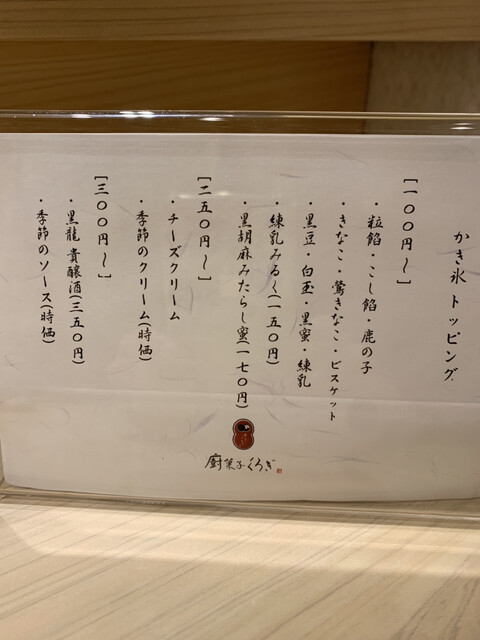 かき氷 トッピング
[一〇〇円～]
・粒餡・こし餡・鹿の子
・きなこ・鶯きなこ・ビスケット
・黒豆・白玉・黒蜜・練乳
・練乳みるく(一五〇円)
・黒胡麻みたらし蜜(一七〇円)
[二五〇円～]
・チーズクリーム
・季節のクリーム(時価)
[三〇〇円～]
・黒龍 貴醸酒(三五〇円)
・季節のソース(時価)
廚菓子くろぎ